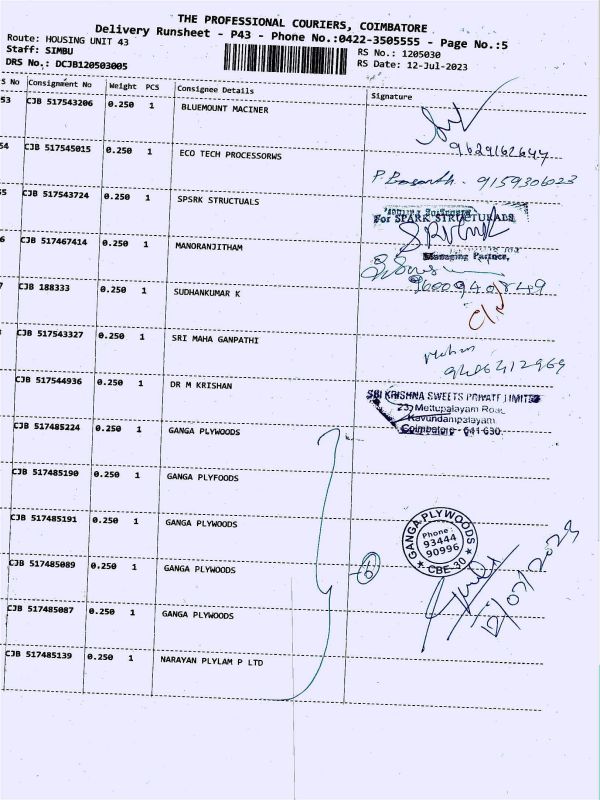 THE PROFESSIONAL COURIERS, COIMBATORE
Delivery Runsheet - P43 - Phone No.:0422-3505555 - Page No.:5
Route: HOUSING UNIT 43
Staff: SIMBU
RS No.: 1205030
DRS No.: DCJB120503005
RS Date: 12-Jul-2023
S No Consignment No Weight PCS Consignee Details Signature
53 CJB 517543206 0.250 1 BLUEMOUNT MACINER
9629162647
54 CJB 517545015 0.250 1 ECO TECH PROCESSORWS
9159306023
55 CJB 517543724 0.250 1 SPSRK STRUCTUALS
For SPARK STRUCTURALS
Managing Partner.
6 CJB 517467414 0.250 1 MANORANJITHAM
7 CJB 188333 0.250 1 SUDHANKUMAR K
CJB 517543327 0.250 1 SRI MAHA GANPATHI
CJB 517544936 0.250 1 DR M KRISHAN
SRI KRISHNA SWEETS PRIVATE LIMITED
23, Mettupalayam Road,
Kavundampalayam
Coimbatore - 641 030.
CJB 517485224 0.250 1 GANGA PLYWOODS
CJB 517485190 0.250 1 GANGA PLYFOODS
CJB 517485191 0.250 1 GANGA PLYWOODS
GANGA PLYWOODS
Phone :
93444
90996
CBE-30
CJB 517485089 0.250 1 GANGA PLYWOODS
6
12/07/2023
CJB 517485087 0.250 1 GANGA PLYWOODS
CJB 517485139 0.250 1 NARAYAN PLYLAM P LTD